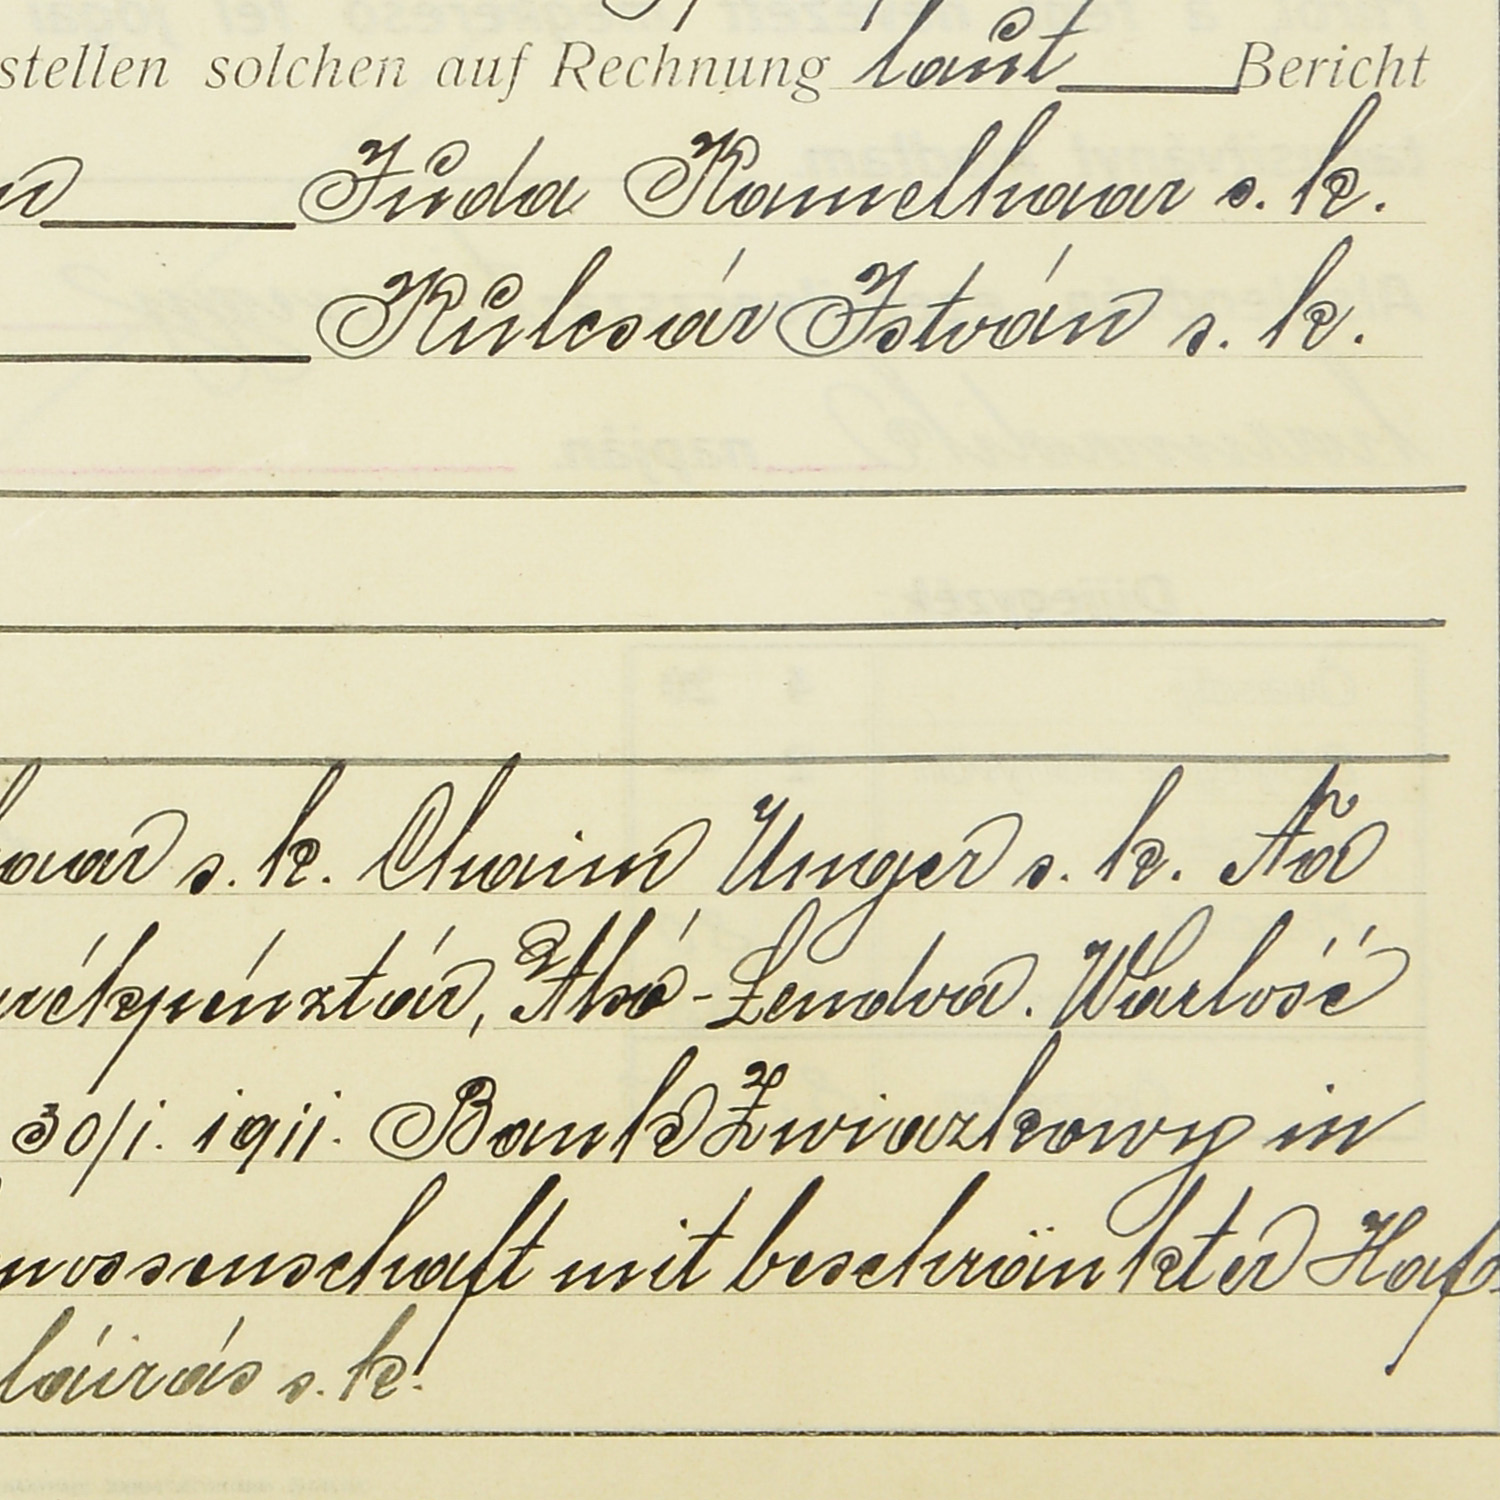 stellen solchen auf Rechnung laut Bericht
Juda Kamelhaar s. k.
Kulcsár István s. k.
haar s. k. Chaim Unger s. k. Für
rékpénztár, Alsó-Lendva. Wartość
30/I. 1911. Bank Zwiazkowy in
nossenschaft mit beschränkter Haf
láirás s. k.